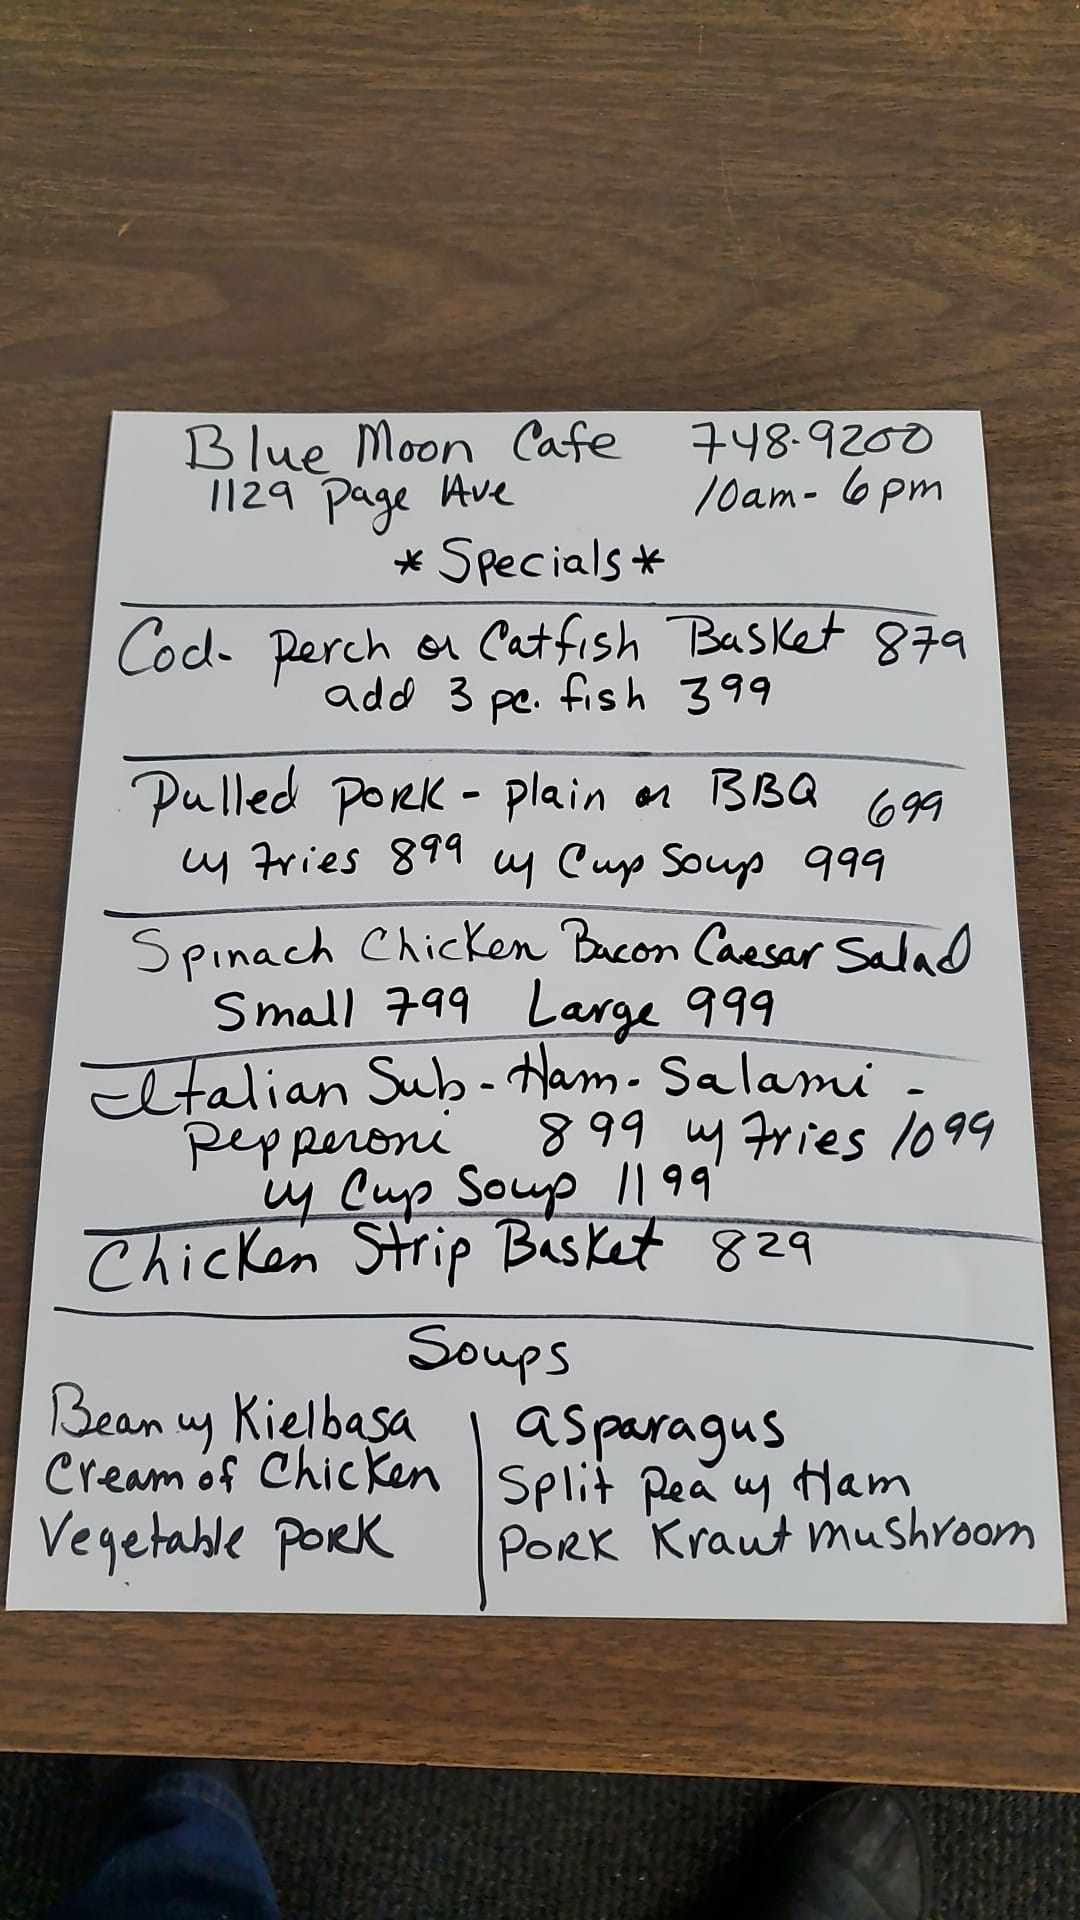 Blue Moon Cafe 748-9200
1129 Page Ave 10am - 6pm
* Specials *
Cod - Perch or Catfish Basket 879
add 3 pc. fish 399
Pulled Pork - plain or BBQ 699
w/ Fries 899 w/ Cup Soup 999
Spinach Chicken Bacon Caesar Salad
Small 799 Large 999
Italian Sub - Ham - Salami -
Pepperoni 899 w/ Fries 1099
w/ Cup Soup 1199
Chicken Strip Basket 829
Soups
Bean w/ Kielbasa
Cream of Chicken
Vegetable Pork
Asparagus
Split Pea w/ Ham
Pork Kraut Mushroom